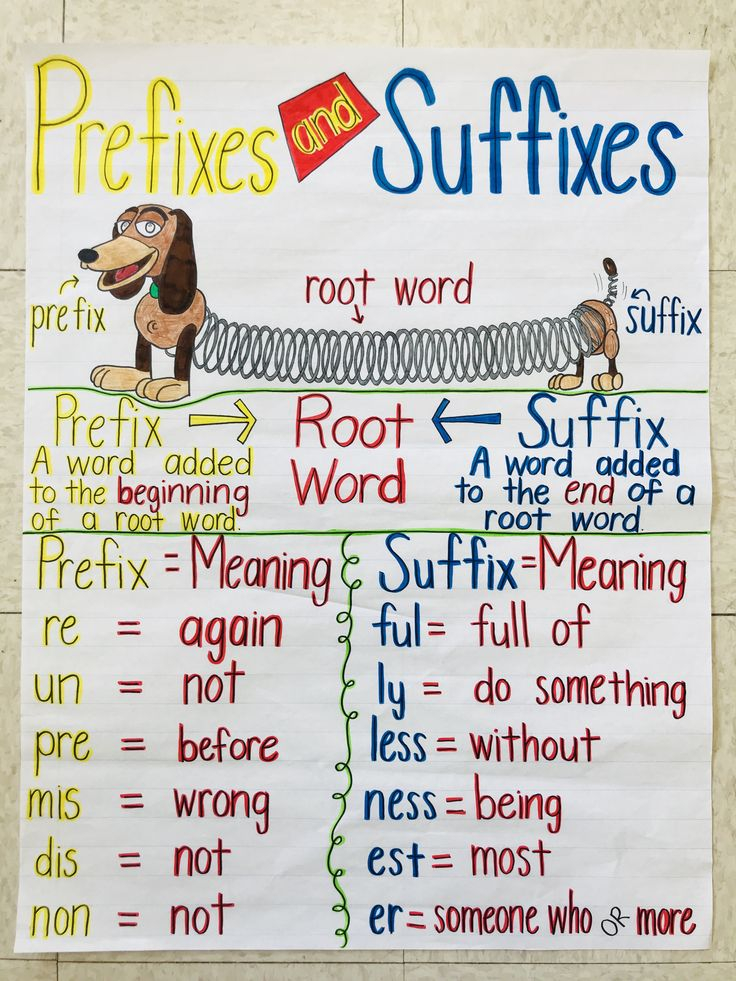 Prefixes and Suffixes
root word
prefix
suffix
Prefix → Root Word ← Suffix
A word added
to the beginning
of a root word.
A word added
to the end of a
root word.
Prefix = Meaning
re = again
un = not
pre = before
mis = wrong
dis = not
non = not
Suffix = Meaning
ful = full of
ly = do something
less = without
ness = being
est = most
er = someone who OR more